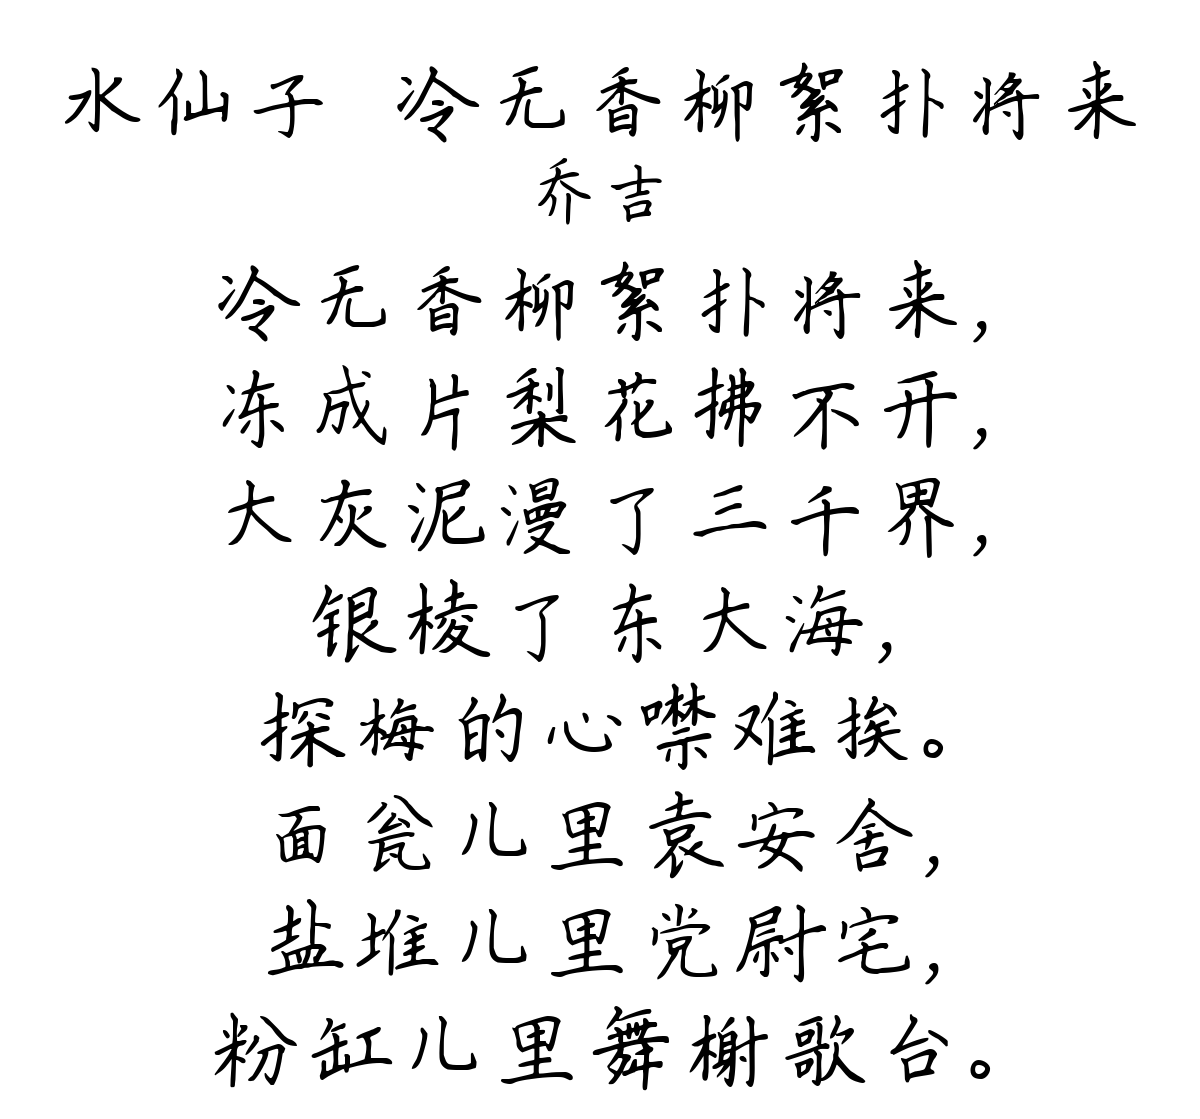 水仙子 冷无香柳絮扑将来
乔吉
冷无香柳絮扑将来，
冻成片梨花拂不开，
大灰泥漫了三千界，
银棱了东大海，
探梅的心噤难挨。
面瓮儿里袁安舍，
盐堆儿里党尉宅，
粉缸儿里舞榭歌台。